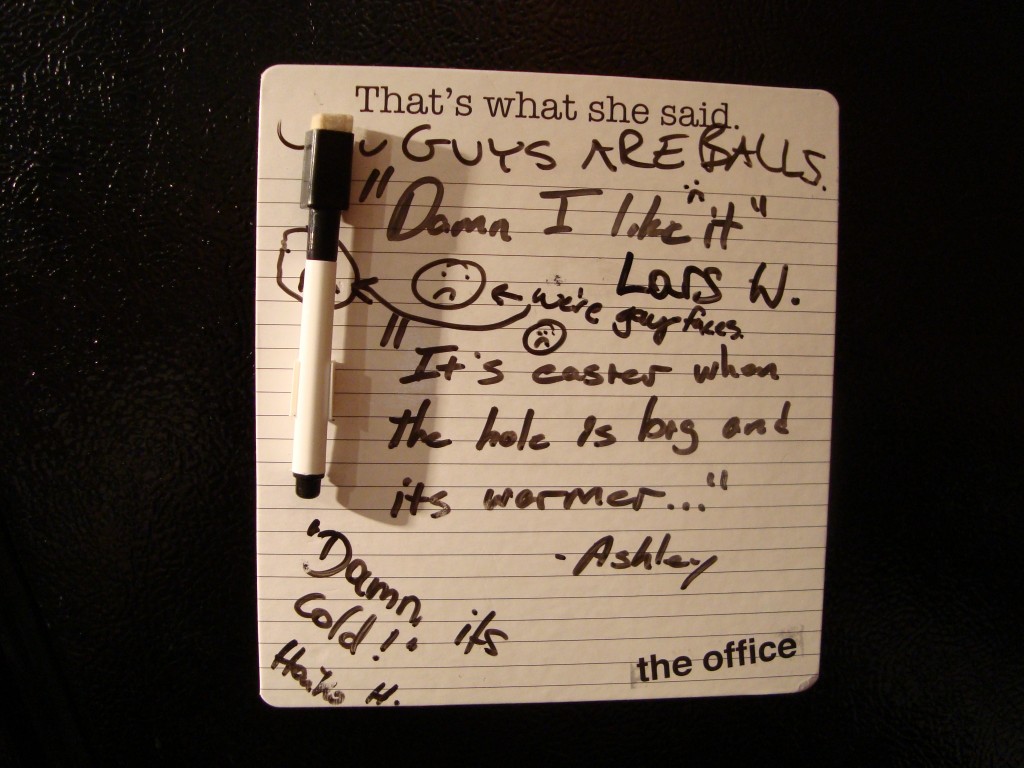 That's what she said.
You GUYS ARE BALLS.
"Damn I like it"
Lars W.
we're
gay faces.
"It's easier when
the hole is big and
its warmer..."
-Ashley
"Damn its
cold!!
H.
the office